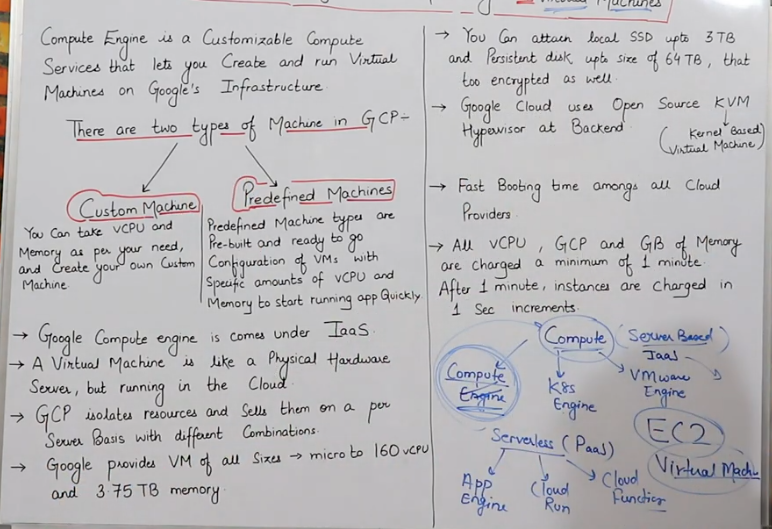 Virtual Machines
Compute Engine is a Customizable Compute
Services that lets you Create and run Virtual
Machines on Google's Infrastructure.
There are two types of Machine in GCP-
Custom Machine
You Can take VCPU and
Memory as per your need,
and Create your own Custom
Machine.
Predefined Machines
Predefined Machine types are
Pre-built and ready to go
Configuration of VMs with
Specific amounts of VCPU and
Memory to start running app Quickly.
→ Google Compute engine is comes under IaaS.
→ A Virtual Machine is like a Physical Hardware
Server, but running in the Cloud.
→ GCP isolates resources and Sells them on a per
Server Basis with different Combinations.
→ Google provides VM of all Sizes → micro to 160 vCPU
and 3.75 TB memory.
→ You Can attach local SSD upto 3TB
and Persistent disk upto size of 64TB, that
too encrypted as well.
→ Google Cloud uses Open Source KVM
Hypervisor at Backend.
(Kernel Based
Virtual Machine)
→ Fast Booting time amongs all Cloud
Providers.
→ All VCPU, GCP and GB of Memory
are charged a minimum of 1 minute.
After 1 minute, instances are charged in
1 Sec increments.
Compute (Server Based)
IaaS
Compute
Engine
K8s
Engine
VMware
Engine
EC2
Virtual Machi
Serverless (PaaS)
App
Engine
Cloud
Run
Cloud
Function